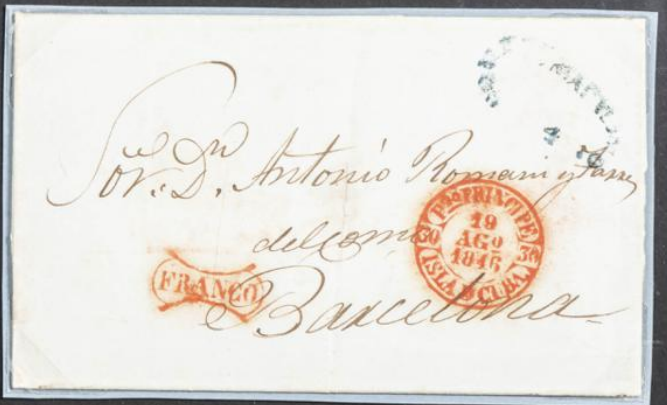 Sor. Dn. Antonio Romani y
del comº
Barcelona
FRANCO
Pto PRINCIPE
30 19 30
AGO
1845
ISLA D CUBA.
4